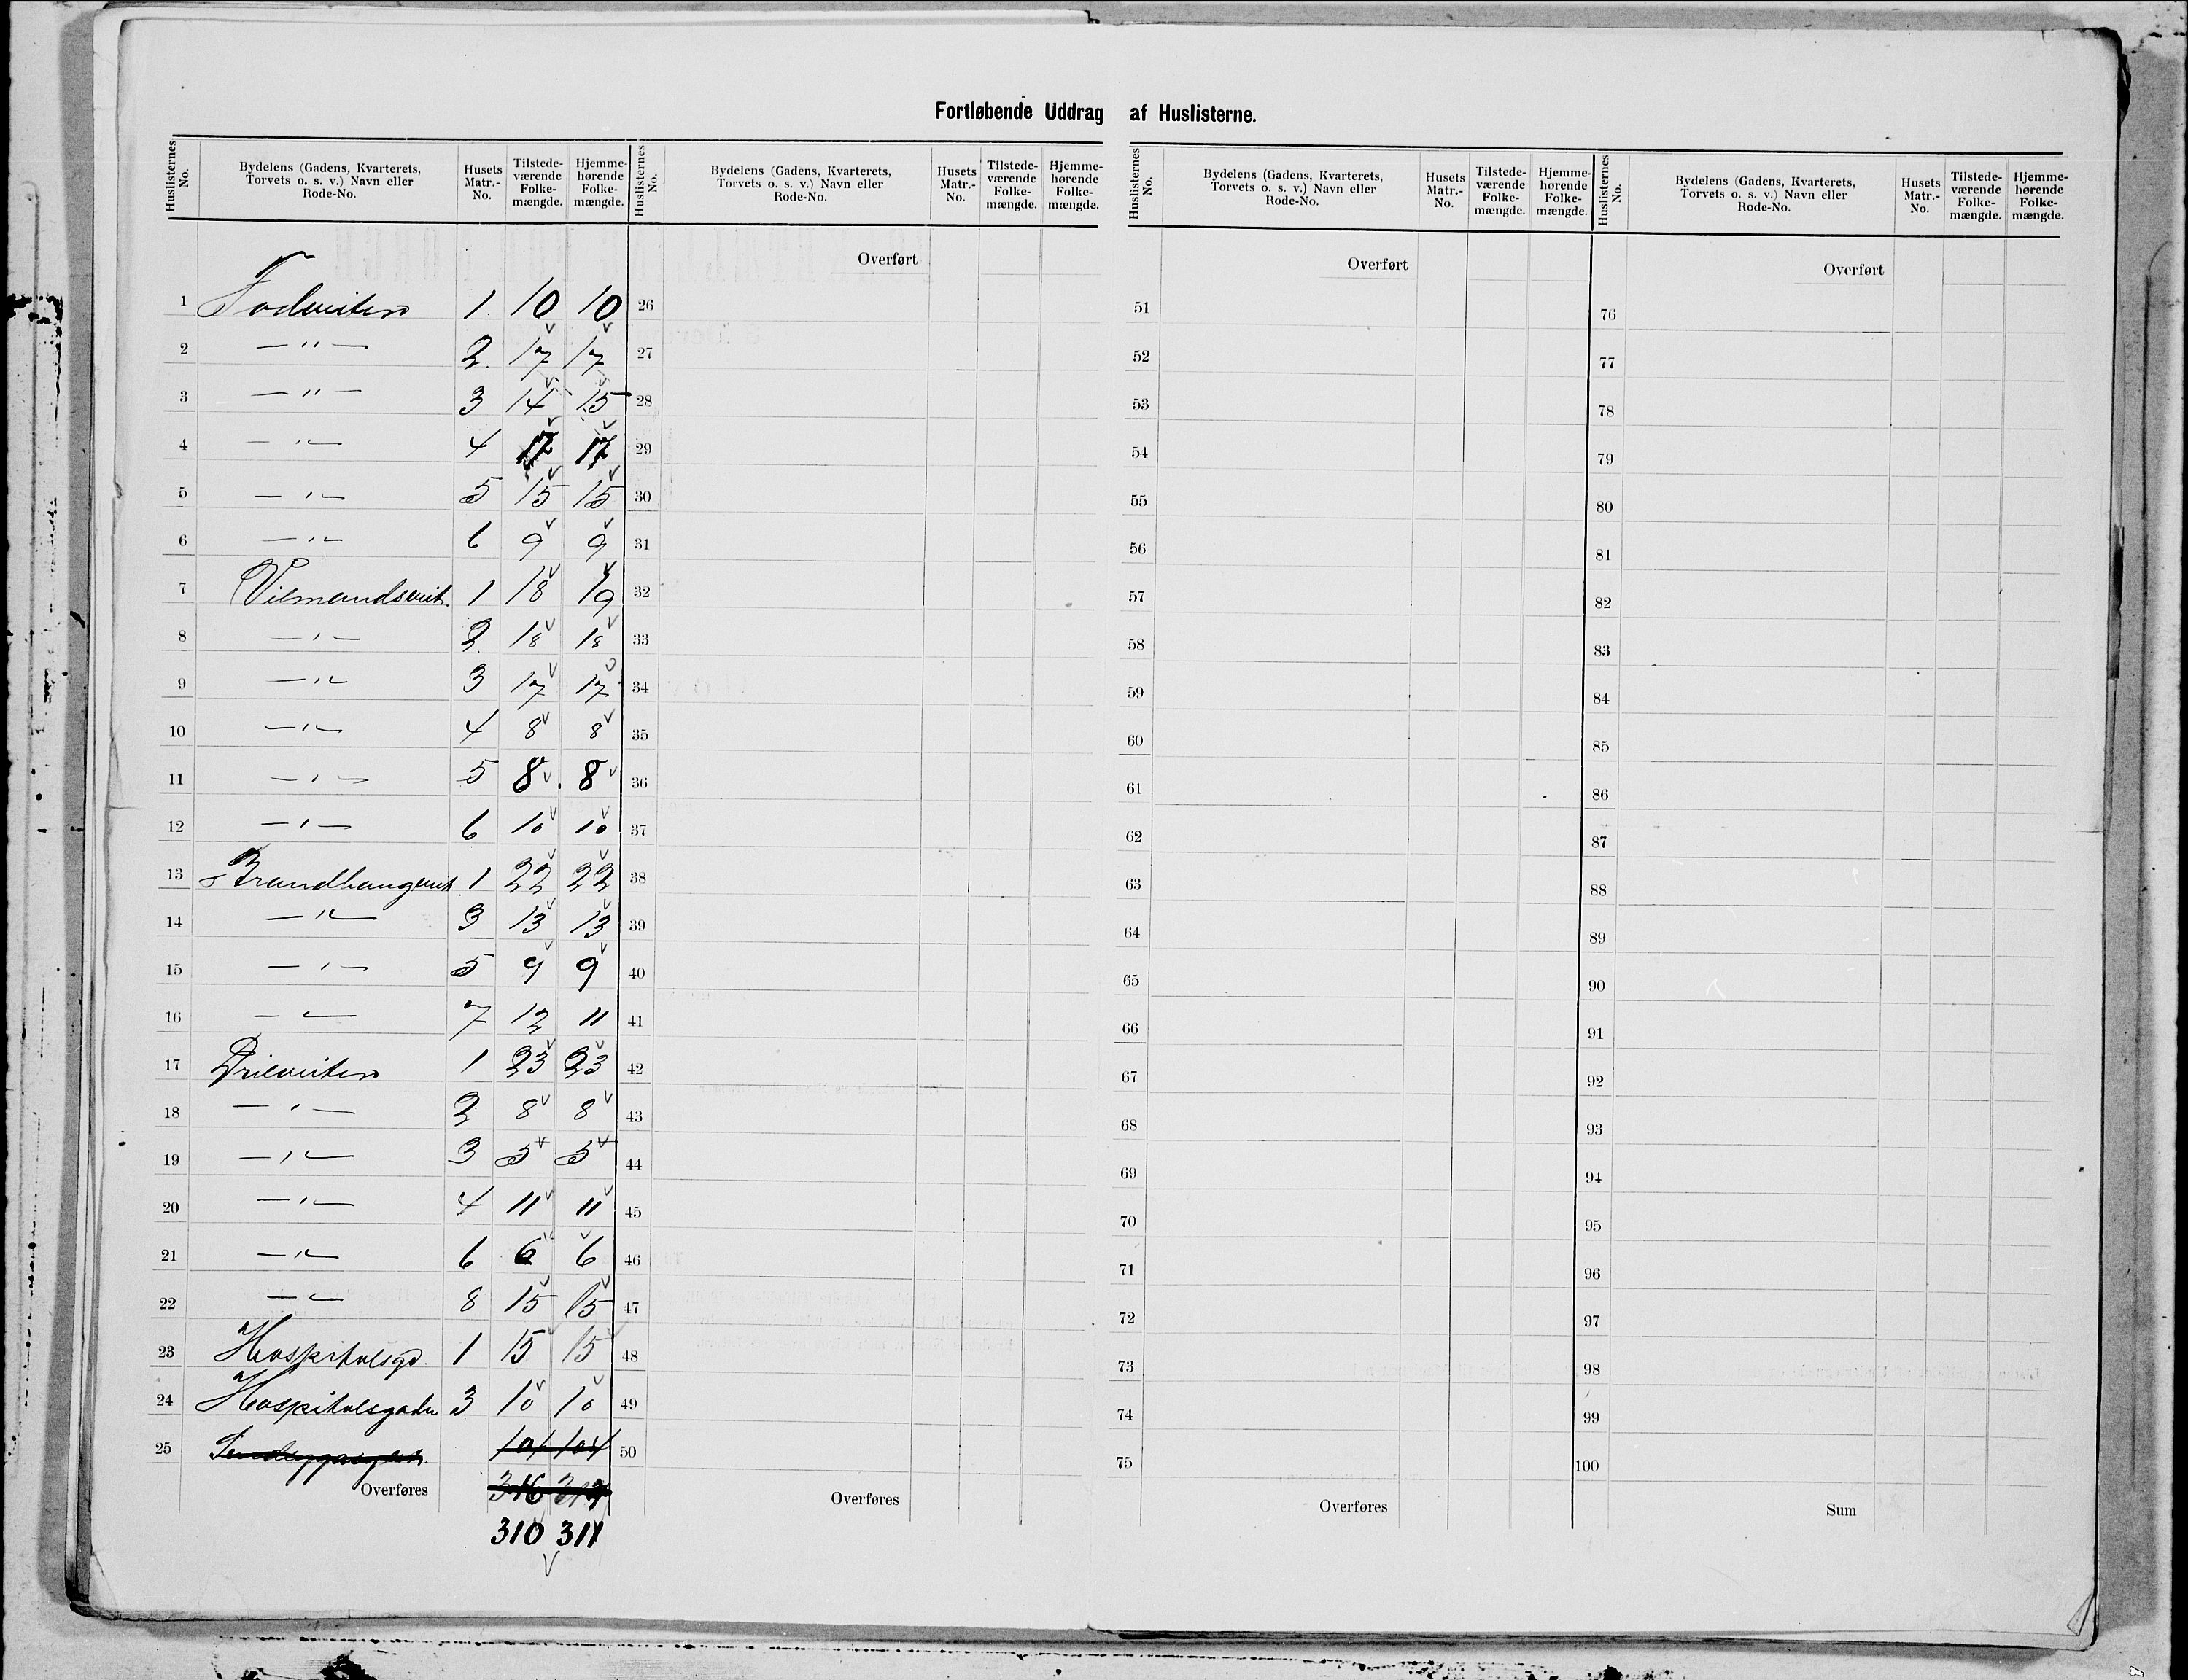 Fortløbende Uddrag af Huslisterne.
Huslisternes No. Bydelens (Gadens, Kvarterets, Torvets o. s. v.) Navn eller Rode-No. Husets Matr.-No. Tilstede-værende Folke-mængde. Hjemme-hørende Folke-mængde.
1 Fodveiten 1 10 10
2 — " — 2. 17 17
3 — " — 3 14 15
4 — " — 4 17 17
5 — " — 5 15 15
6 — " — 6 9 9
7 Vilmandsveit. 1 18 19
8 — " — 2. 18 18
9 — " — 3 17 17
10 — " — 4 8 8
11 — " — 5 8 8
12 — " — 6 10 10
13 Brandhaugveit 1 22 22
14 — " — 3 13 13
15 — " — 5 9 9
16 — " — 7 12 11
17 Prieveiten 1 23 23
18 — " — 2 8 8
19 — " — 3 5 5
20 — " — 4 11 11
21 — " — 6 6 6
22 — " — 8 15 15
23 Hospitalsgd. 1 15 15
24 Hospitalsgaden 3 10 10
25 104 104
Overføres 316
310 311
Huslisternes No. Bydelens (Gadens, Kvarterets, Torvets o. s. v.) Navn eller Rode-No. Husets Matr.-No. Tilstede-værende Folke-mængde. Hjemme-hørende Folke-mængde.
Overført
26
27
28
29
30
31
32
33
34
35
36
37
38
39
40
41
42
43
44
45
46
47
48
49
50
Overføres
Huslisternes No. Bydelens (Gadens, Kvarterets, Torvets o. s. v.) Navn eller Rode-No. Husets Matr.-No. Tilstede-værende Folke-mængde. Hjemme-hørende Folke-mængde.
Overført
51
52
53
54
55
56
57
58
59
60
61
62
63
64
65
66
67
68
69
70
71
72
73
74
75
Overføres
Huslisternes No. Bydelens (Gadens, Kvarterets, Torvets o. s. v.) Navn eller Rode-No. Husets Matr.-No. Tilstede-værende Folke-mængde. Hjemme-hørende Folke-mængde.
Overført
76
77
78
79
80
81
82
83
84
85
86
87
88
89
90
91
92
93
94
95
96
97
98
99
100
Sum